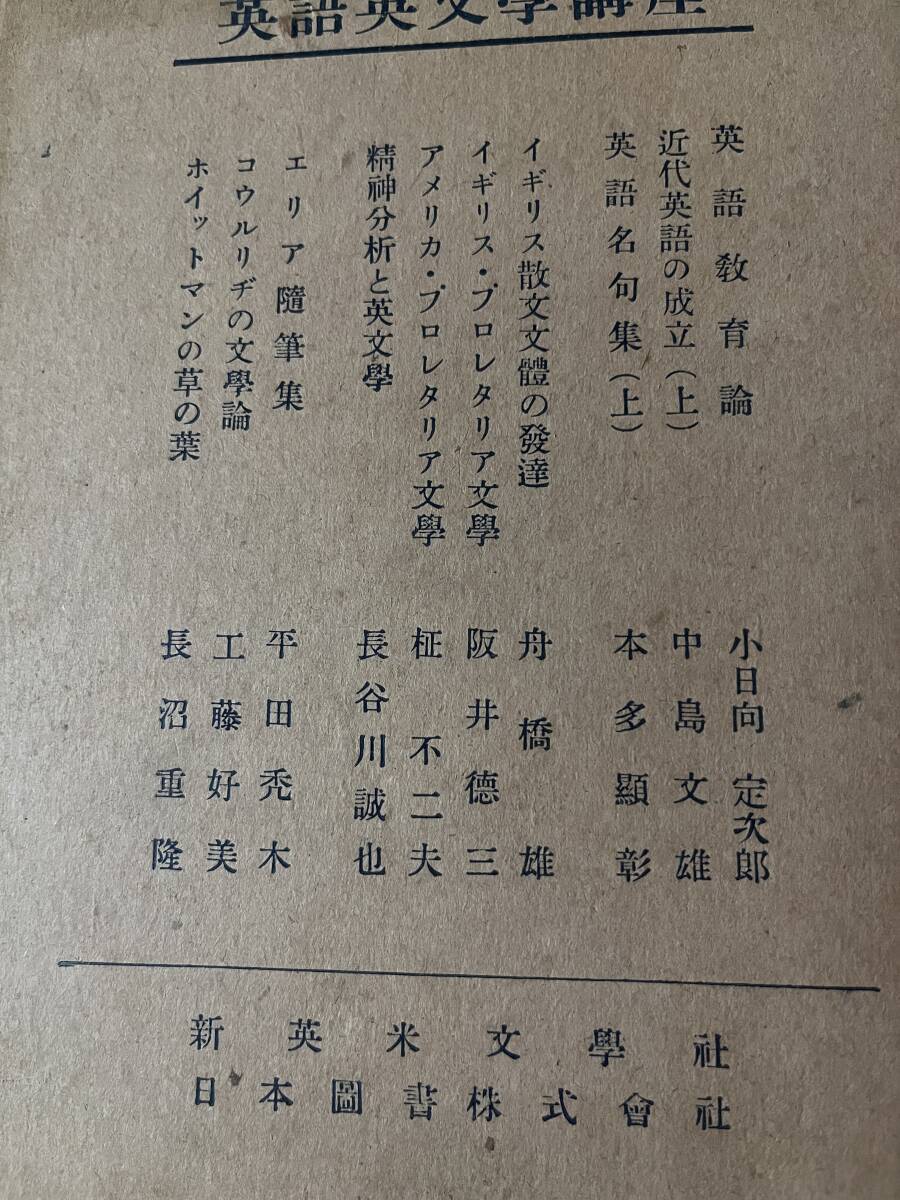 英語英文學講座
英語教育論
小日向定次郎
近代英語の成立(上)
中島文雄
英語名句集(上)
本多顯彰
イギリス散文文體の發達
舟橋雄
イギリス・プロレタリア文學
阪井德三
アメリカ・プロレタリア文學
柾不二夫
精神分析と英文學
長谷川誠也
エリア隨筆集
平田禿木
コウルリヂの文學論
工藤好美
ホイットマンの草の葉
長沼重隆
新英米文學社
日本圖書株式會社